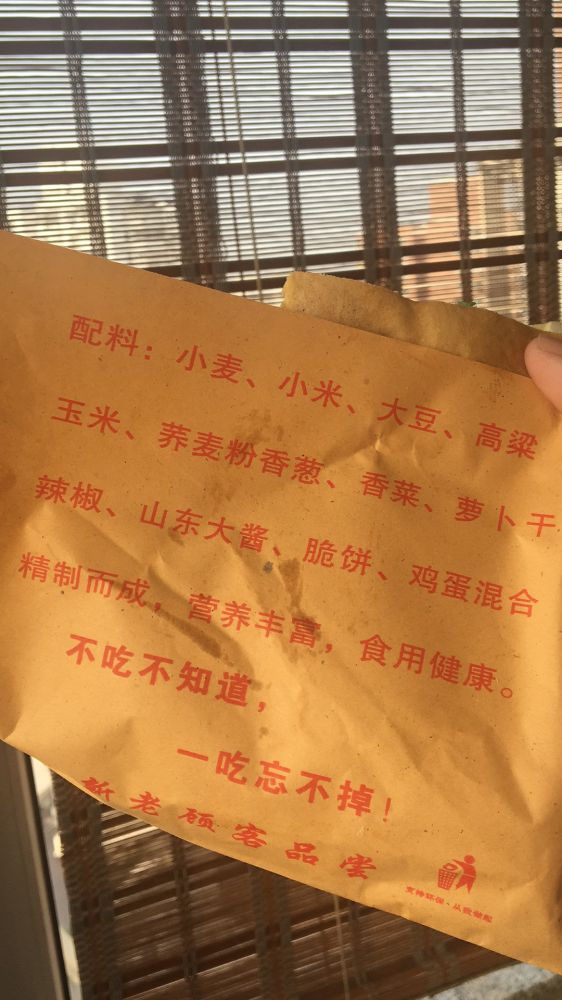 配料：小麦、小米、大豆、高粱
玉米、荞麦粉香葱、香菜、萝卜干
辣椒、山东大酱、脆饼、鸡蛋混合
精制而成，营养丰富，食用健康。
不吃不知道，
一吃忘不掉！
新老顾客品尝
支持环保·从我做起